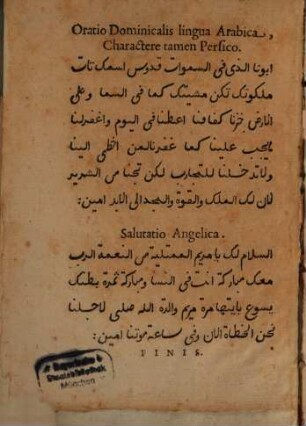 Oratio Dominicalis lingua Arabica,
Charactere tamen Persico.
ابونا الذي في السموات قدوس اسمك تات
ملكوتك تكن مشيتك كما في السما وعلي
الارض خبزنا كفافنا اعطنا في اليوم واغفر لنا
ما يجب علينا كما غفرنا لمن اخطي الينا
ولا تدخلنا للتجارب لكن نجنا من الشرير
لان لك الملك والقوة والمجد الي الابد امين:
Salutatio Angelica.
السلام لك يا مريم الممتلية من النعمة الرب
معك مباركة انت في النسا ومباركة ثمرة بطنك
يسوع يا ايتها مرة مريم والدة الله صلي لاجلنا
نحن الخطاة الان وفي ساعة موتنا امين:
FINIS.
Bayerische
Staatsbibliothek
München